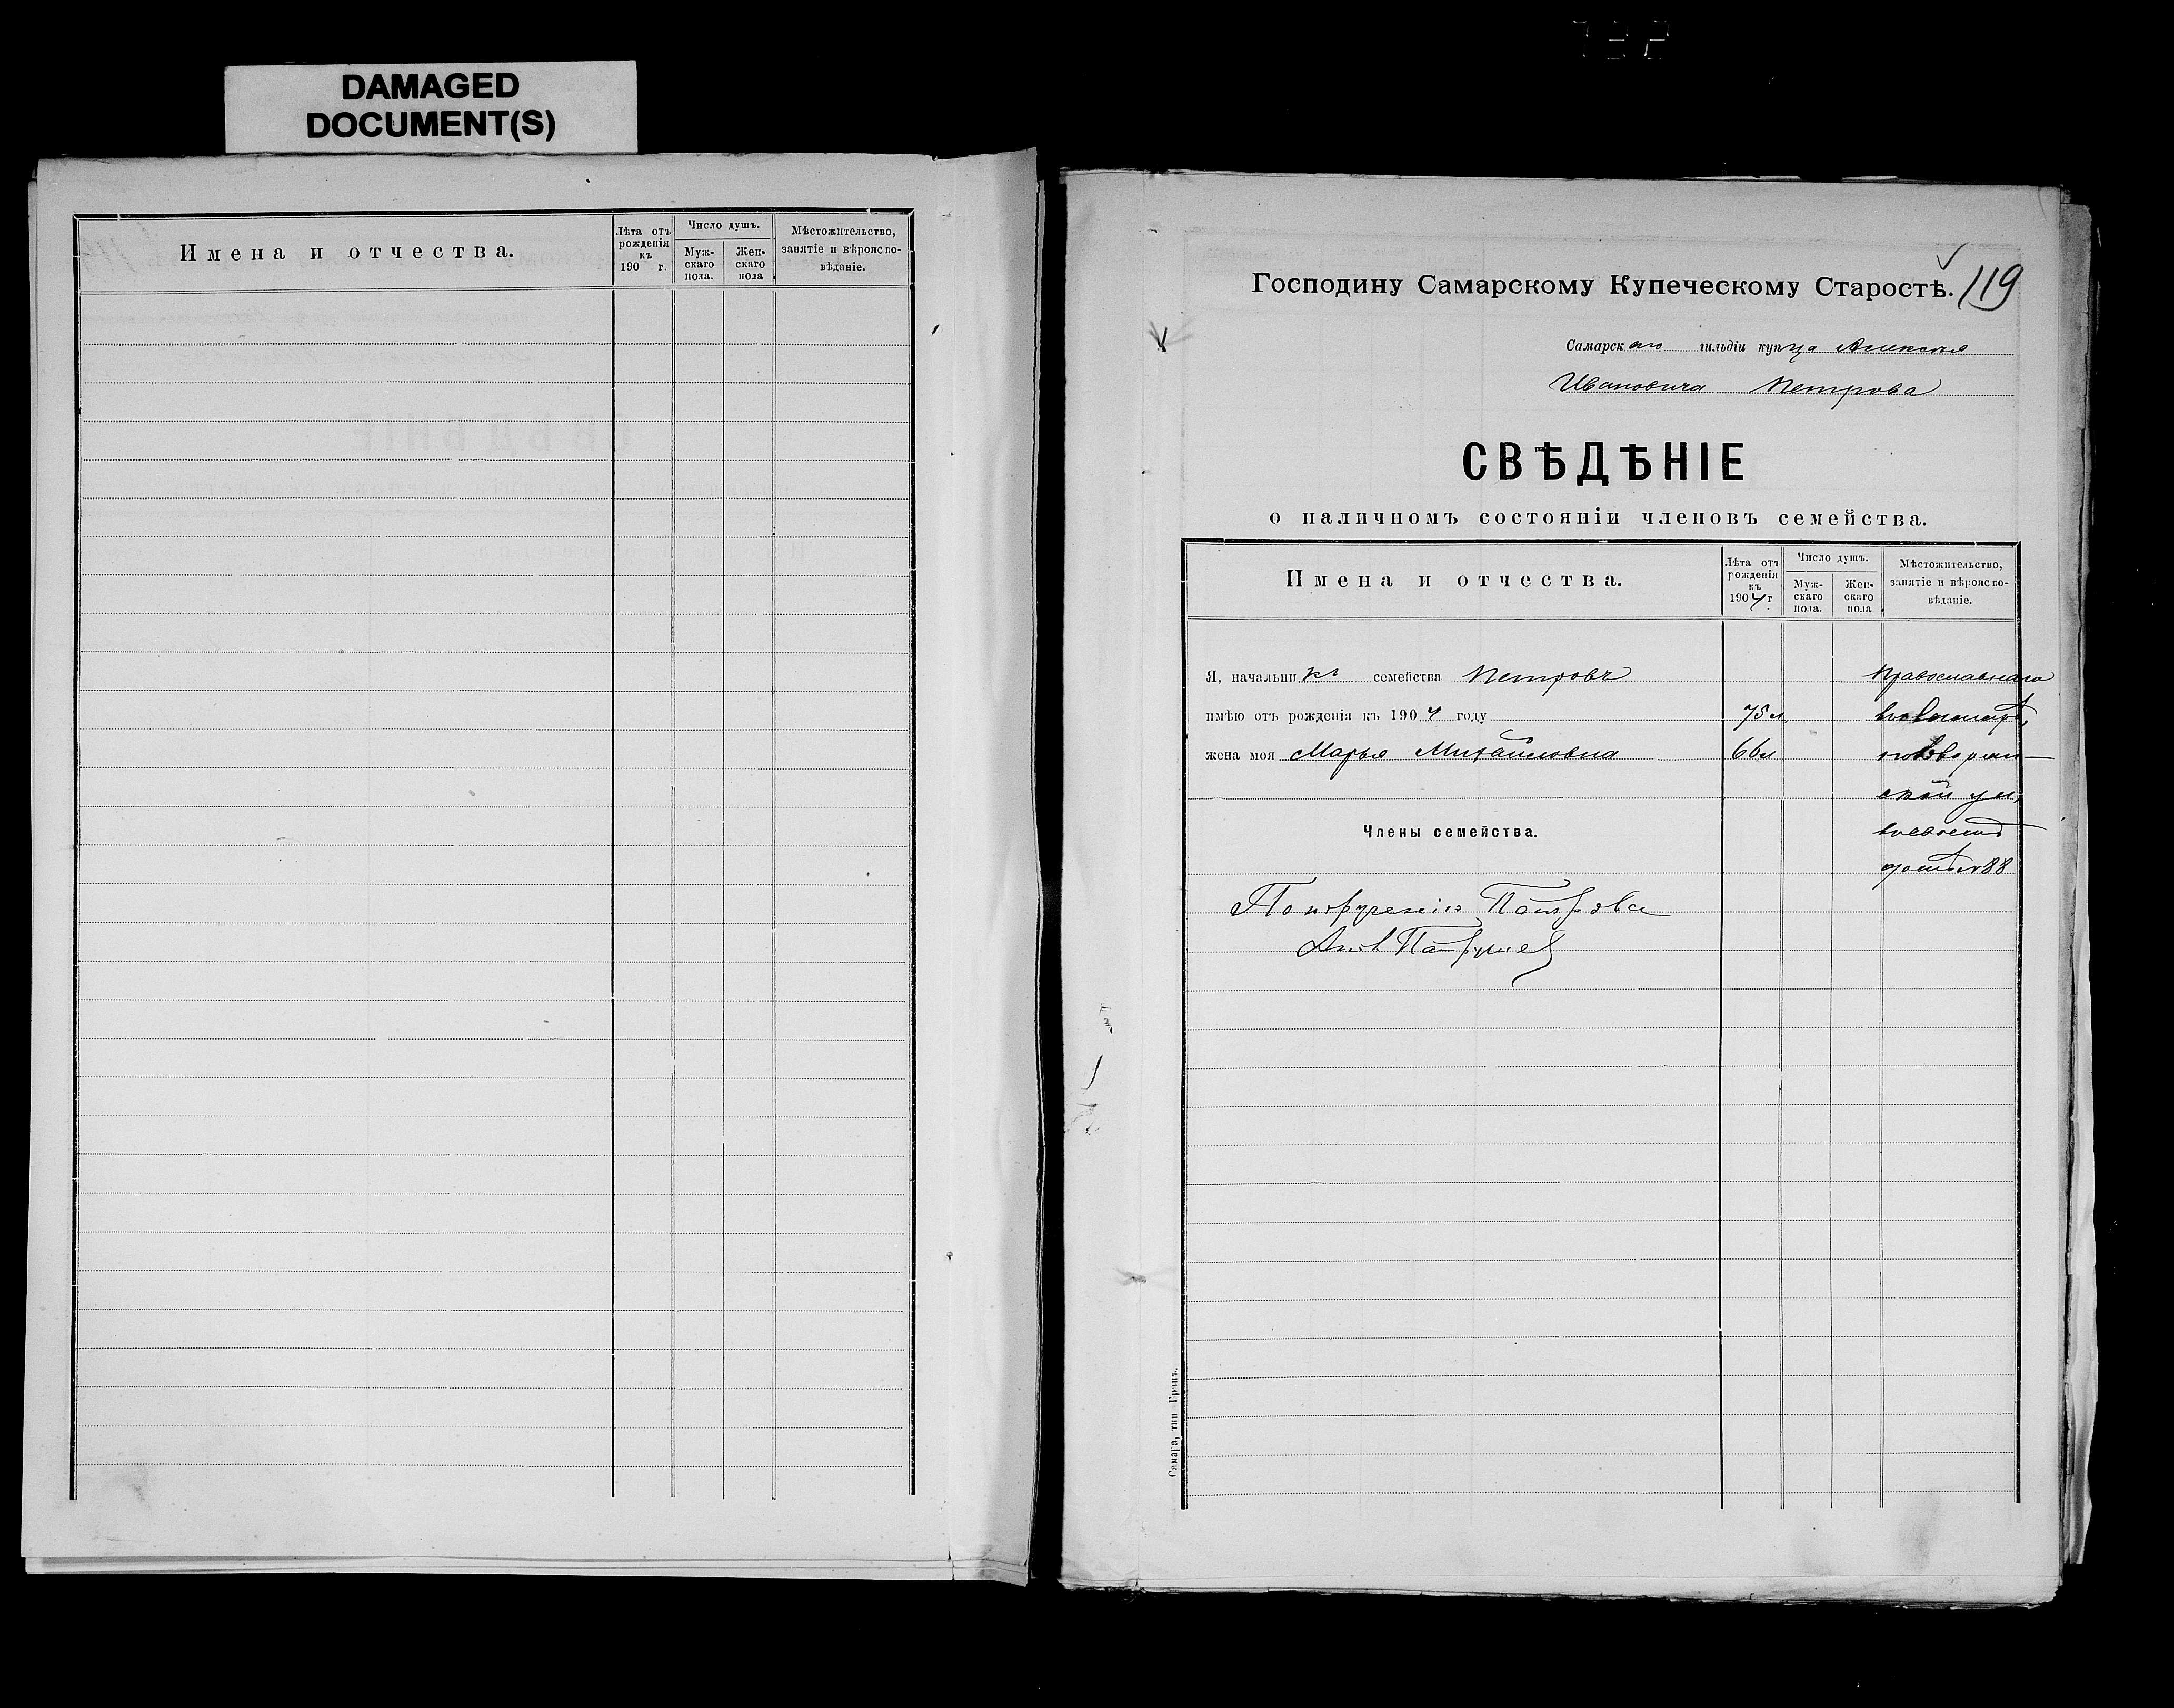 DAMAGED
DOCUMENT(S)
Имена и отчества.
Лѣта отъ рожденія къ 190 г.
Число душъ.
Мужскаго пола.
Женскаго пола
Мѣстожительство, занятіе и вѣроисповѣданіе.
119
Господину Самарскому Купеческому Старостѣ.
Самарскаго гильдіи купца Алексѣя
Ивановича Петрова
СВѢДѢНІЕ
о наличномъ состояніи членовъ семейства.
Имена и отчества.
Лѣта отъ рожденія къ 1904 г.
Число душъ.
Мужскаго пола.
Женскаго пола
Мѣстожительство, занятіе и вѣроисповѣданіе.
Я, начальникъ семейства Петровъ Православнаго
имѣю отъ рожденія къ 1904 году 75 л
жена моя Марья Михайловна 66 л
ской ул,
Члены семейства.
домѣ № 88
По порученію Петрова
Самара, тип Гранъ.